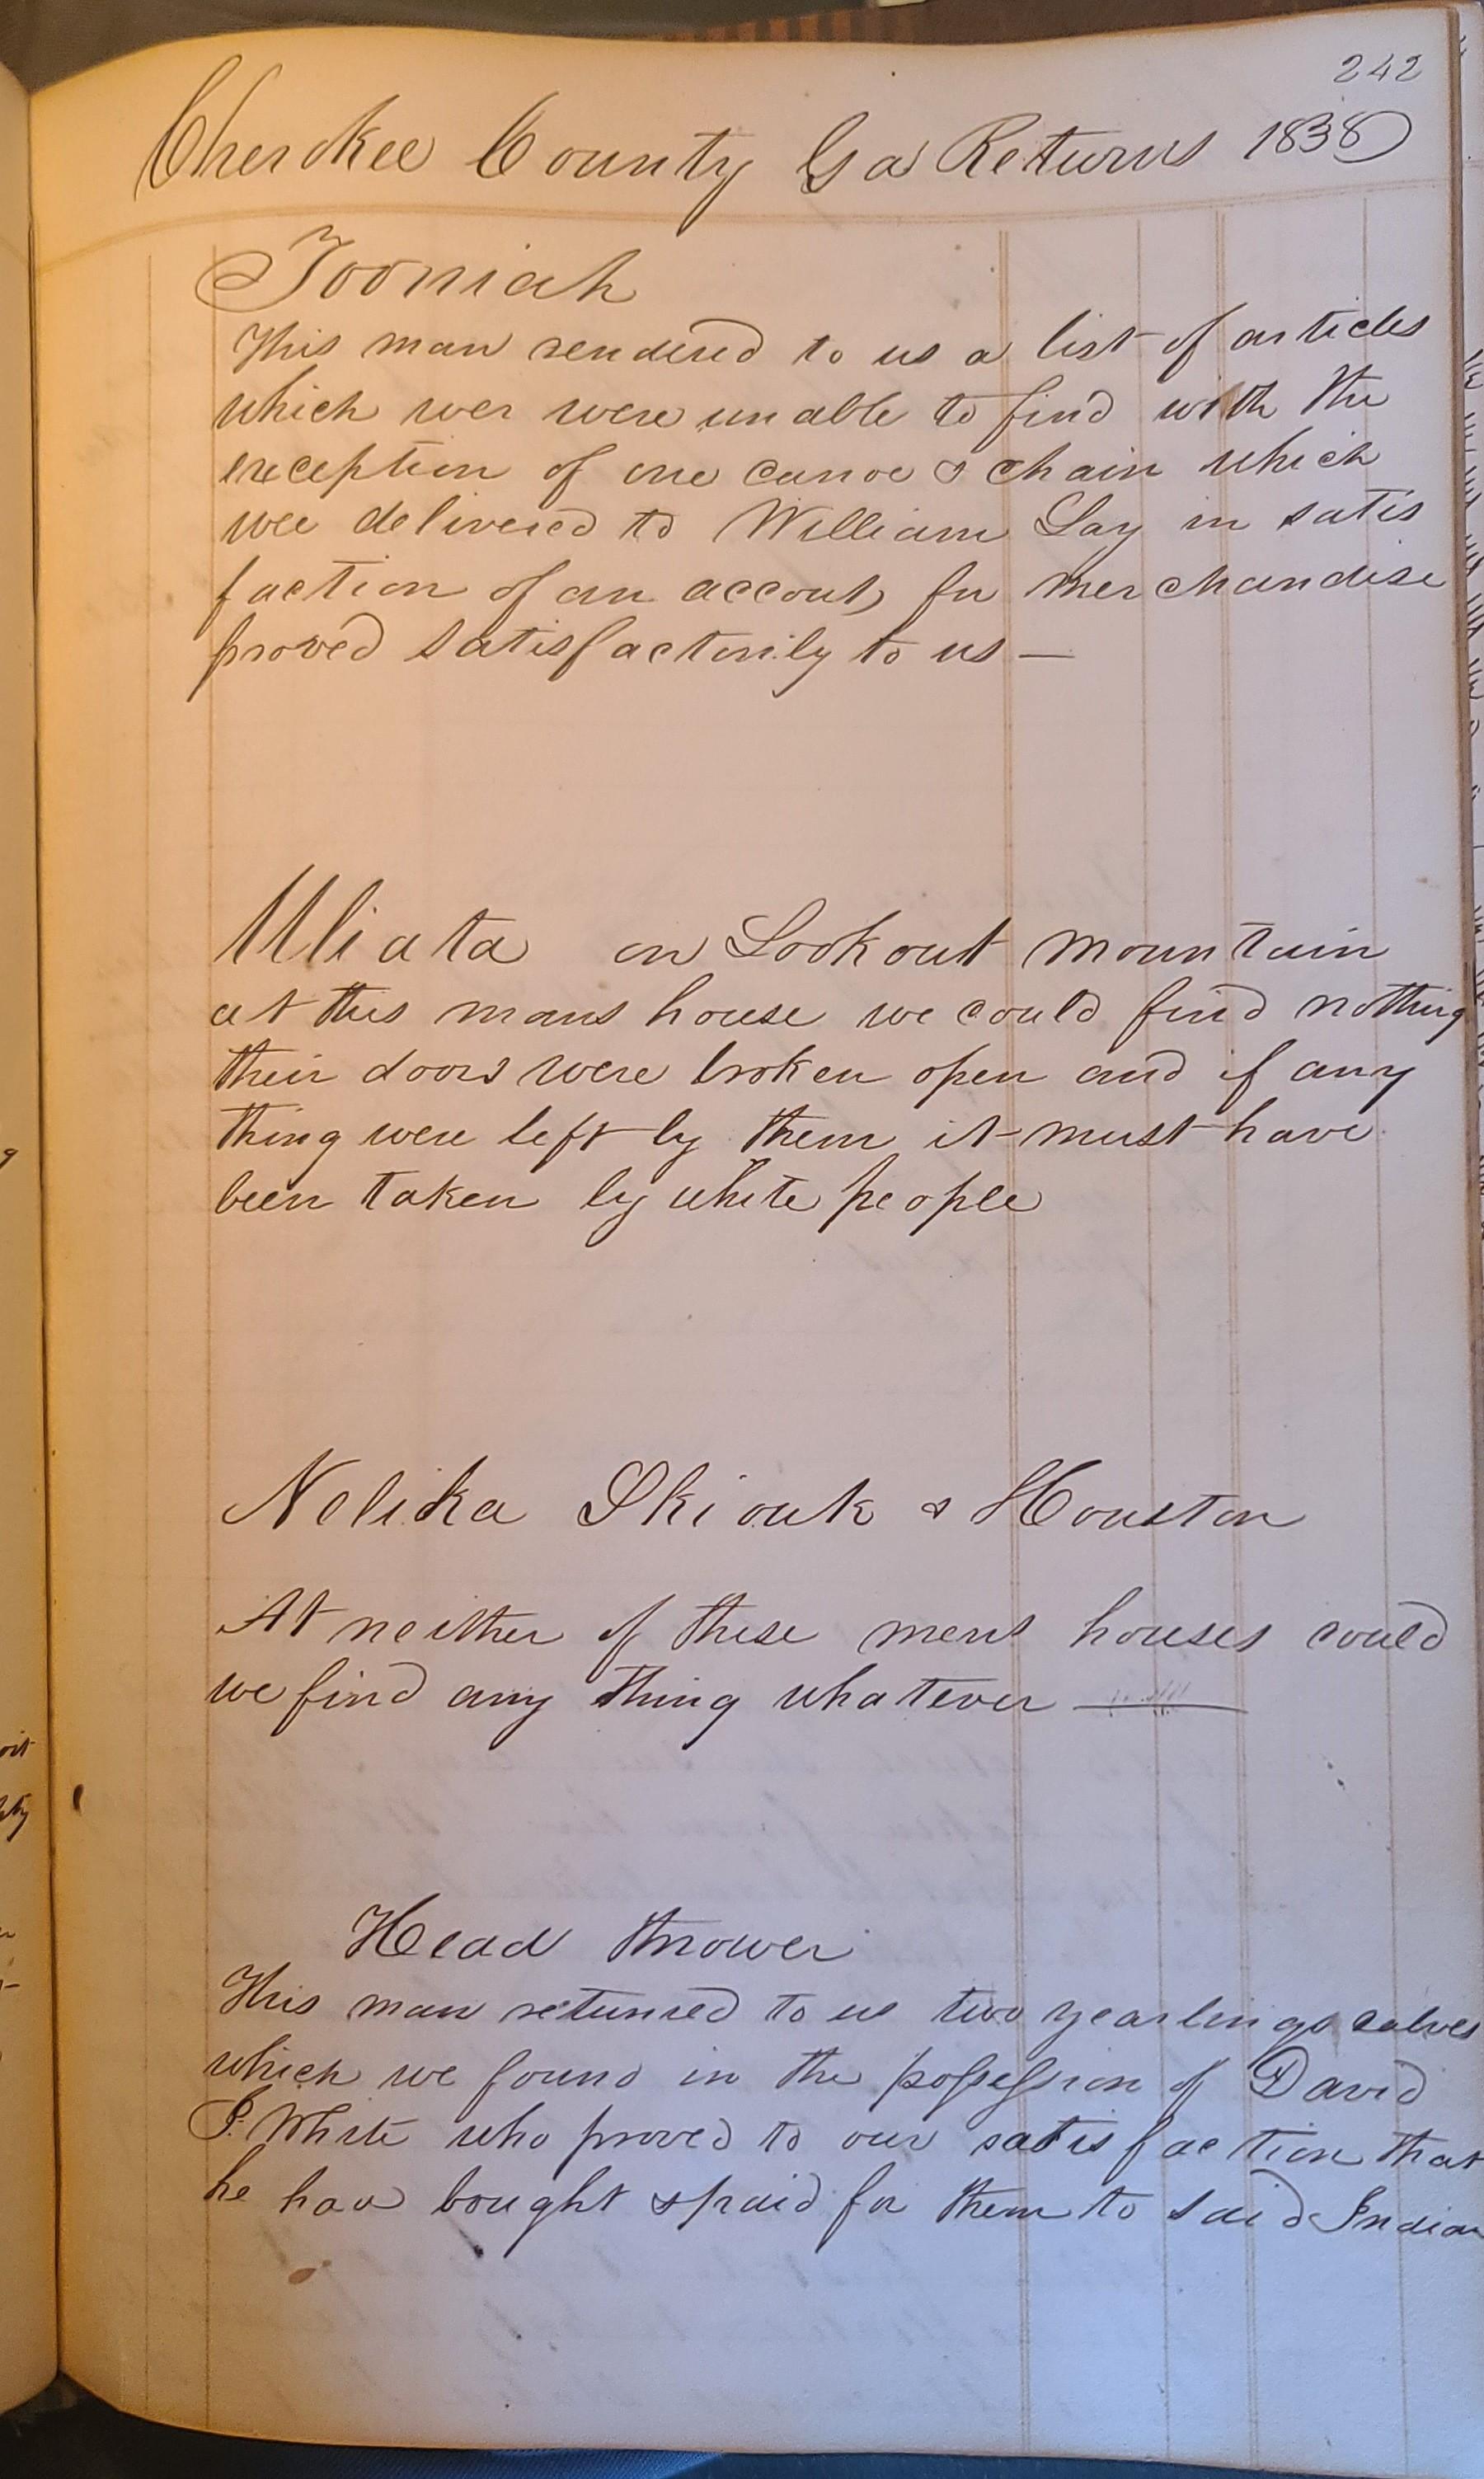 242
Cherokee County Ga Returns 1838
Tooniah
This man rendered to us a list of articles
which wer were unable to find with the
exception of one canoe & chain which
wee delivered to William Lay in satis
faction of an accout, for merchandise
proved satisfactorily to us —
Uliata on Lookout mountain
at this mans house we could find nothing
their doors were broken open and if any
thing were left by them it must have
been taken by white people
Nelika Skiouk & Houston
At neither of these mens houses could
we find any thing whatever —
Head thrower
This man returned to us two yearlings calves
which we found in the possession of David
S. White who proved to our satisfaction that
he had bought & paid for them to said Indian